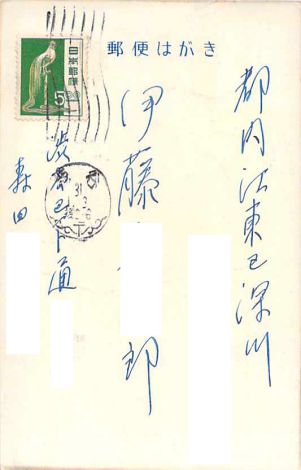 郵便はがき
都内江東区深川
伊藤
郎
渋谷区下通
森田
5
日本郵便
31
3